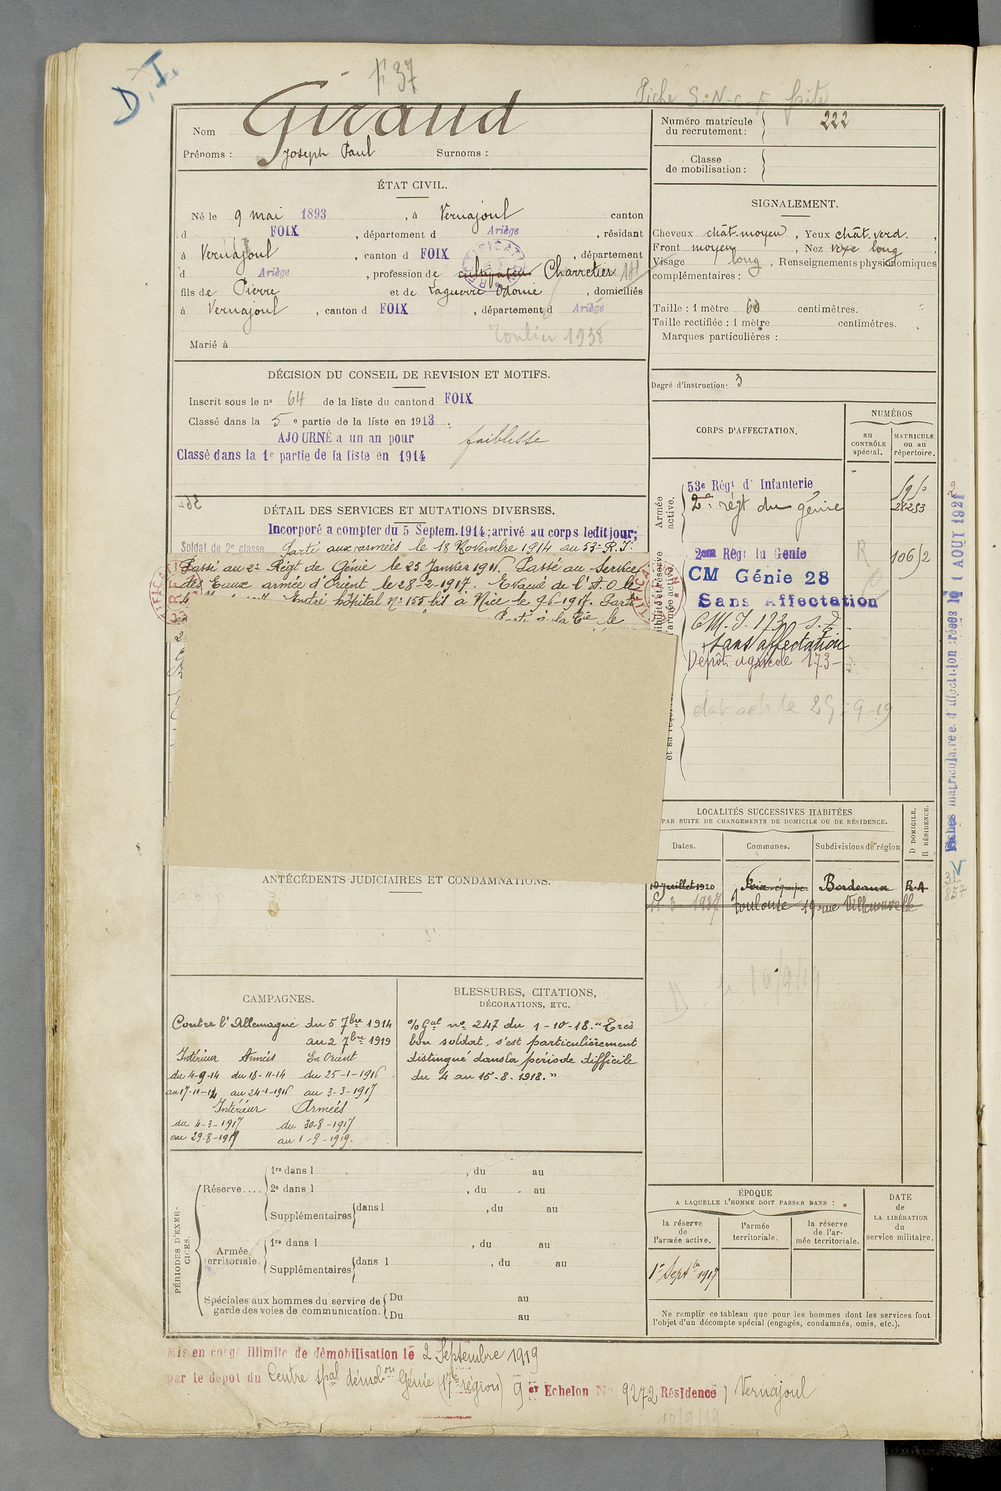 D.I.
F 37
Fiche S.N.C.F. faite
Nom Giraud
Prénoms : Joseph Paul Surnoms :
Numéro matricule du recrutement : 222
Classe de mobilisation :
ÉTAT CIVIL.
Né le 9 mai 1893, à Vernajoul canton
d FOIX, département d Ariège, résidant
à Vernajoul, canton d FOIX, département
d Ariège, profession de cultivateur Charretier
fils de Pierre et de Laguerre Odonie, domiciliés
à Vernajoul, canton d FOIX, département d Ariège
1938
Marié à
SIGNALEMENT.
Cheveux chât. moyen, Yeux chât. verd.,
Front moyen, Nez long,
Visage long, Renseignements physionomiques
complémentaires :
Taille : 1 mètre 60 centimètres.
Taille rectifiée : 1 mètre centimètres.
Marques particulières :
Degré d'instruction : 3
DÉCISION DU CONSEIL DE REVISION ET MOTIFS.
Inscrit sous le nº 64 de la liste du canton d FOIX
Classé dans la 5e partie de la liste en 1913.
AJOURNÉ a un an pour faiblesse
Classé dans la 1e partie de la liste en 1914
CORPS D'AFFECTATION.
NUMÉROS
au CONTRÔLE spécial.
MATRICULE ou au répertoire.
Armée active.
53e Régt d'Infanterie
2e régt du génie
2eme Régt du Genie R 10612
CM Génie 28
Sans Affectation
C.M.I. 173 S.I.
sans affectation
Dépôt agricole 173
29-9-19
DÉTAIL DES SERVICES ET MUTATIONS DIVERSES.
Incorporé a compter du 5 Septem.1914; arrivé au corps ledit jour;
Soldat de 2e classe Parti aux armées le 18 Novembre 1914 au 53e R.I.
Passé au 2e Régt de Génie le 25 Janvier 1916. Passé au Service
des Eaux armée d'Orient le 28-2-1917. Evacué de l'A O le
Entré hôpital nº 155 bis à Nice le 9-6-1917. Parti
Parti à la Cie le
ANTÉCÉDENTS JUDICIAIRES ET CONDAMNATIONS.
LOCALITÉS SUCCESSIVES HABITÉES
PAR SUITE DE CHANGEMENTS DE DOMICILE OU DE RÉSIDENCE.
Dates. Communes. Subdivisions de région
D DOMICILE. R RÉSIDENCE.
10 juillet 1920 Foix équipe Bordeaux R.A
1937 Toulouse 19 rue Villenouvelle
CAMPAGNES.
Contre l'Allemagne du 5 7bre 1914
au 2 7bre 1919
Intérieur Armées En Orient
du 4-9-14 du 18-11-14 du 25-1-1916
au 17-11-14 au 24-1-1916 au 3-3-1917
Intérieur Armées
du 4-3-1917 du 30-8-1917
au 29-8-1917 au 1-9-1919.
BLESSURES, CITATIONS,
DÉCORATIONS, ETC.
O/Gal nº 247 du 1-10-18. "Très
bon soldat, s'est particulièrement
distingué dans la période difficile
du 4 au 15-8-1918."
PÉRIODES D'EXERCICES.
Réserve....
1re dans l , du au
2e dans l , du au
Supplémentaires dans l , du au
Armée territoriale.
1re dans l , du au
Supplémentaires dans l , du au
Spéciales aux hommes du service de garde des voies de communication.
Du au
Du au
ÉPOQUE
A LAQUELLE L'HOMME DOIT PASSER DANS :
la réserve de l'armée active.
l'armée territoriale.
la réserve de l'armée territoriale.
DATE de LA LIBÉRATION du service militaire.
1er Septbre 1917
Ne remplir ce tableau que pour les hommes dont les services font
l'objet d'un décompte spécial (engagés, condamnés, omis, etc.).
Mis en congé illimité de démobilisation le 2 Septembre 1919
par le depot du Centre spal démobon Génie (17e région) 9 er Echelon No 9272 Résidence Vernajoul